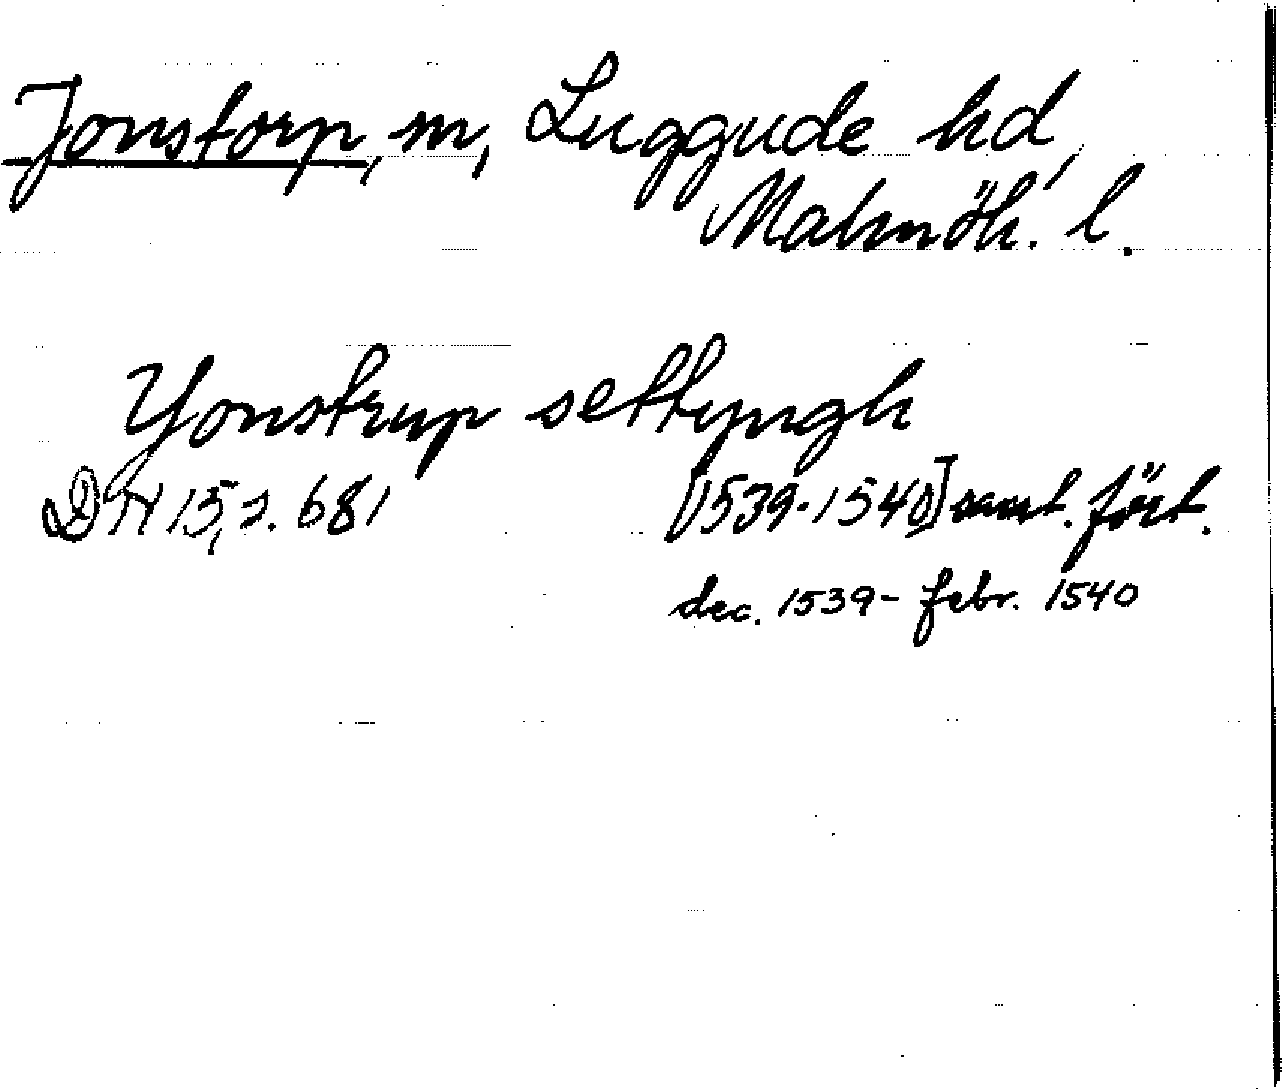 Jonstorp, sn, Luggude hd,
Malmöh. l.
Yonstrup settyngh
DN 15, s. 681 [1539-1540] samt. fört.
dec. 1539- febr. 1540